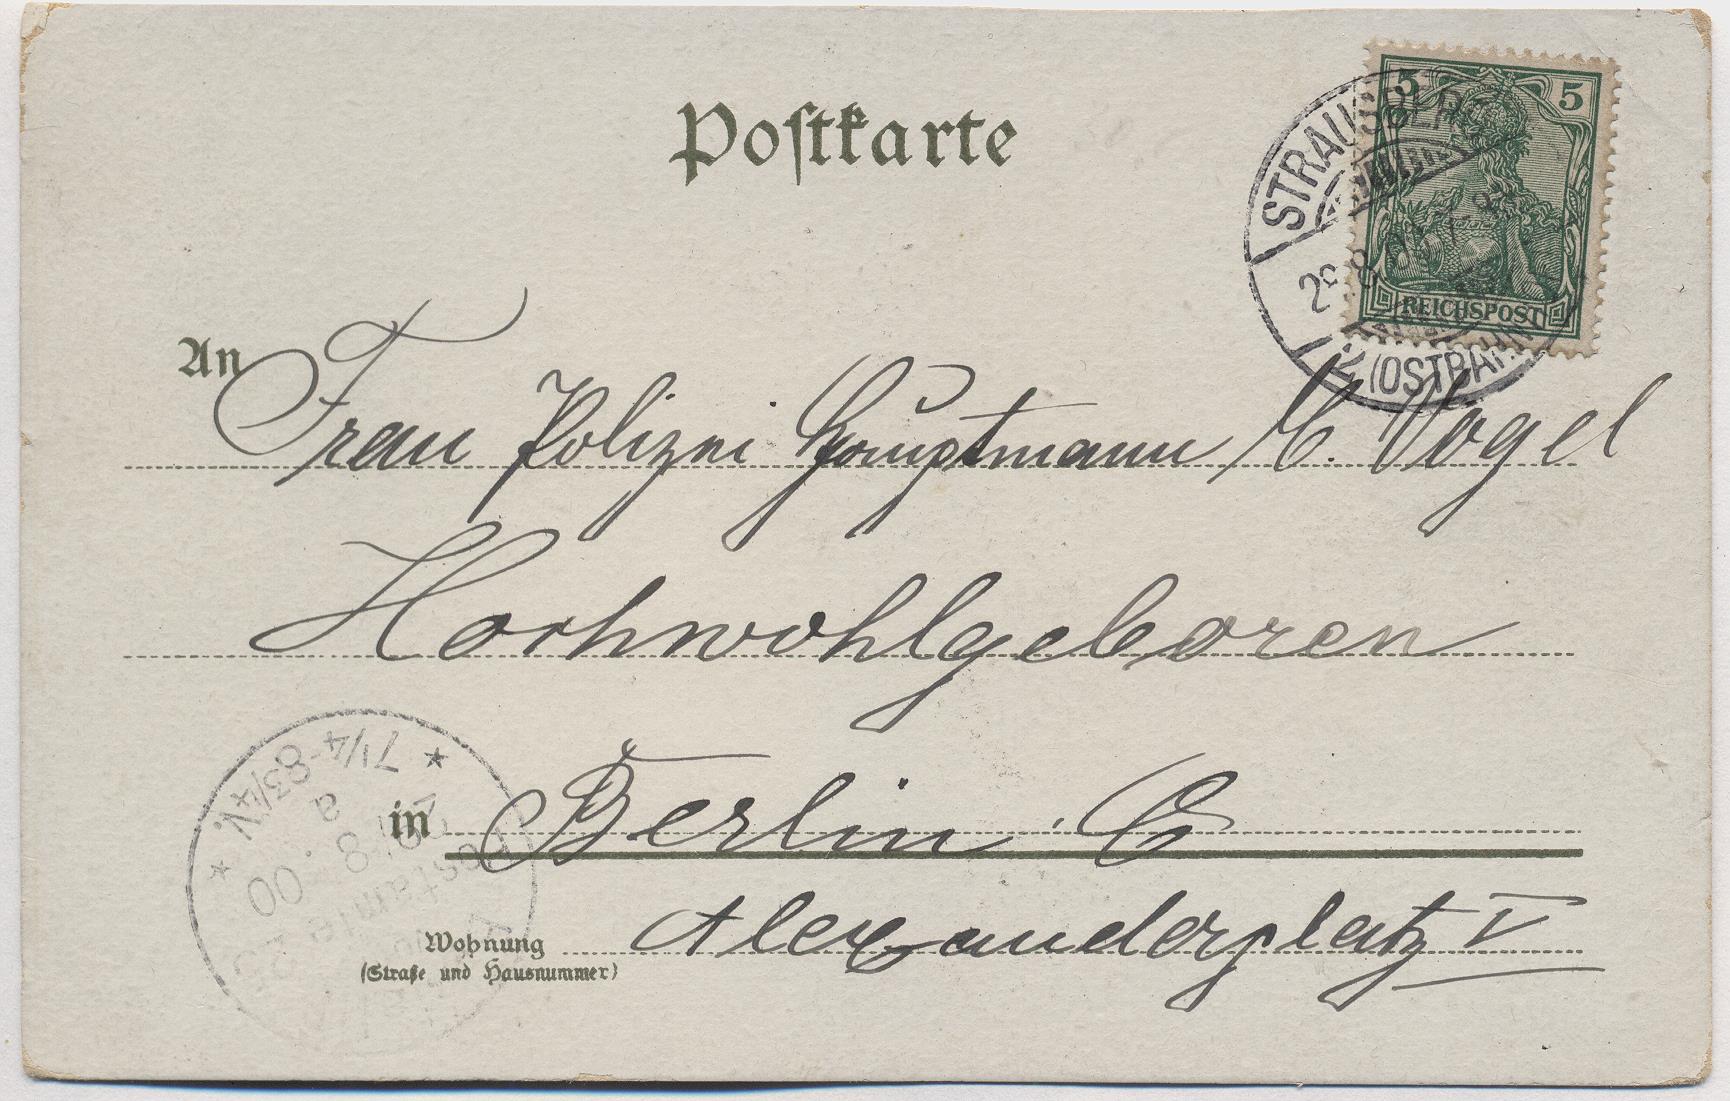 Postkarte
5 5
REICHSPOST
STRAUSBERG
2 (OSTBAHN)
An Frau Polizei Hauptmann C. Vogel
Hochwohlgeboren
in Berlin C
Wohnung Alexanderplatz V
(Straße und Hausnummer)
7¼-8¾N.
a
8.
00